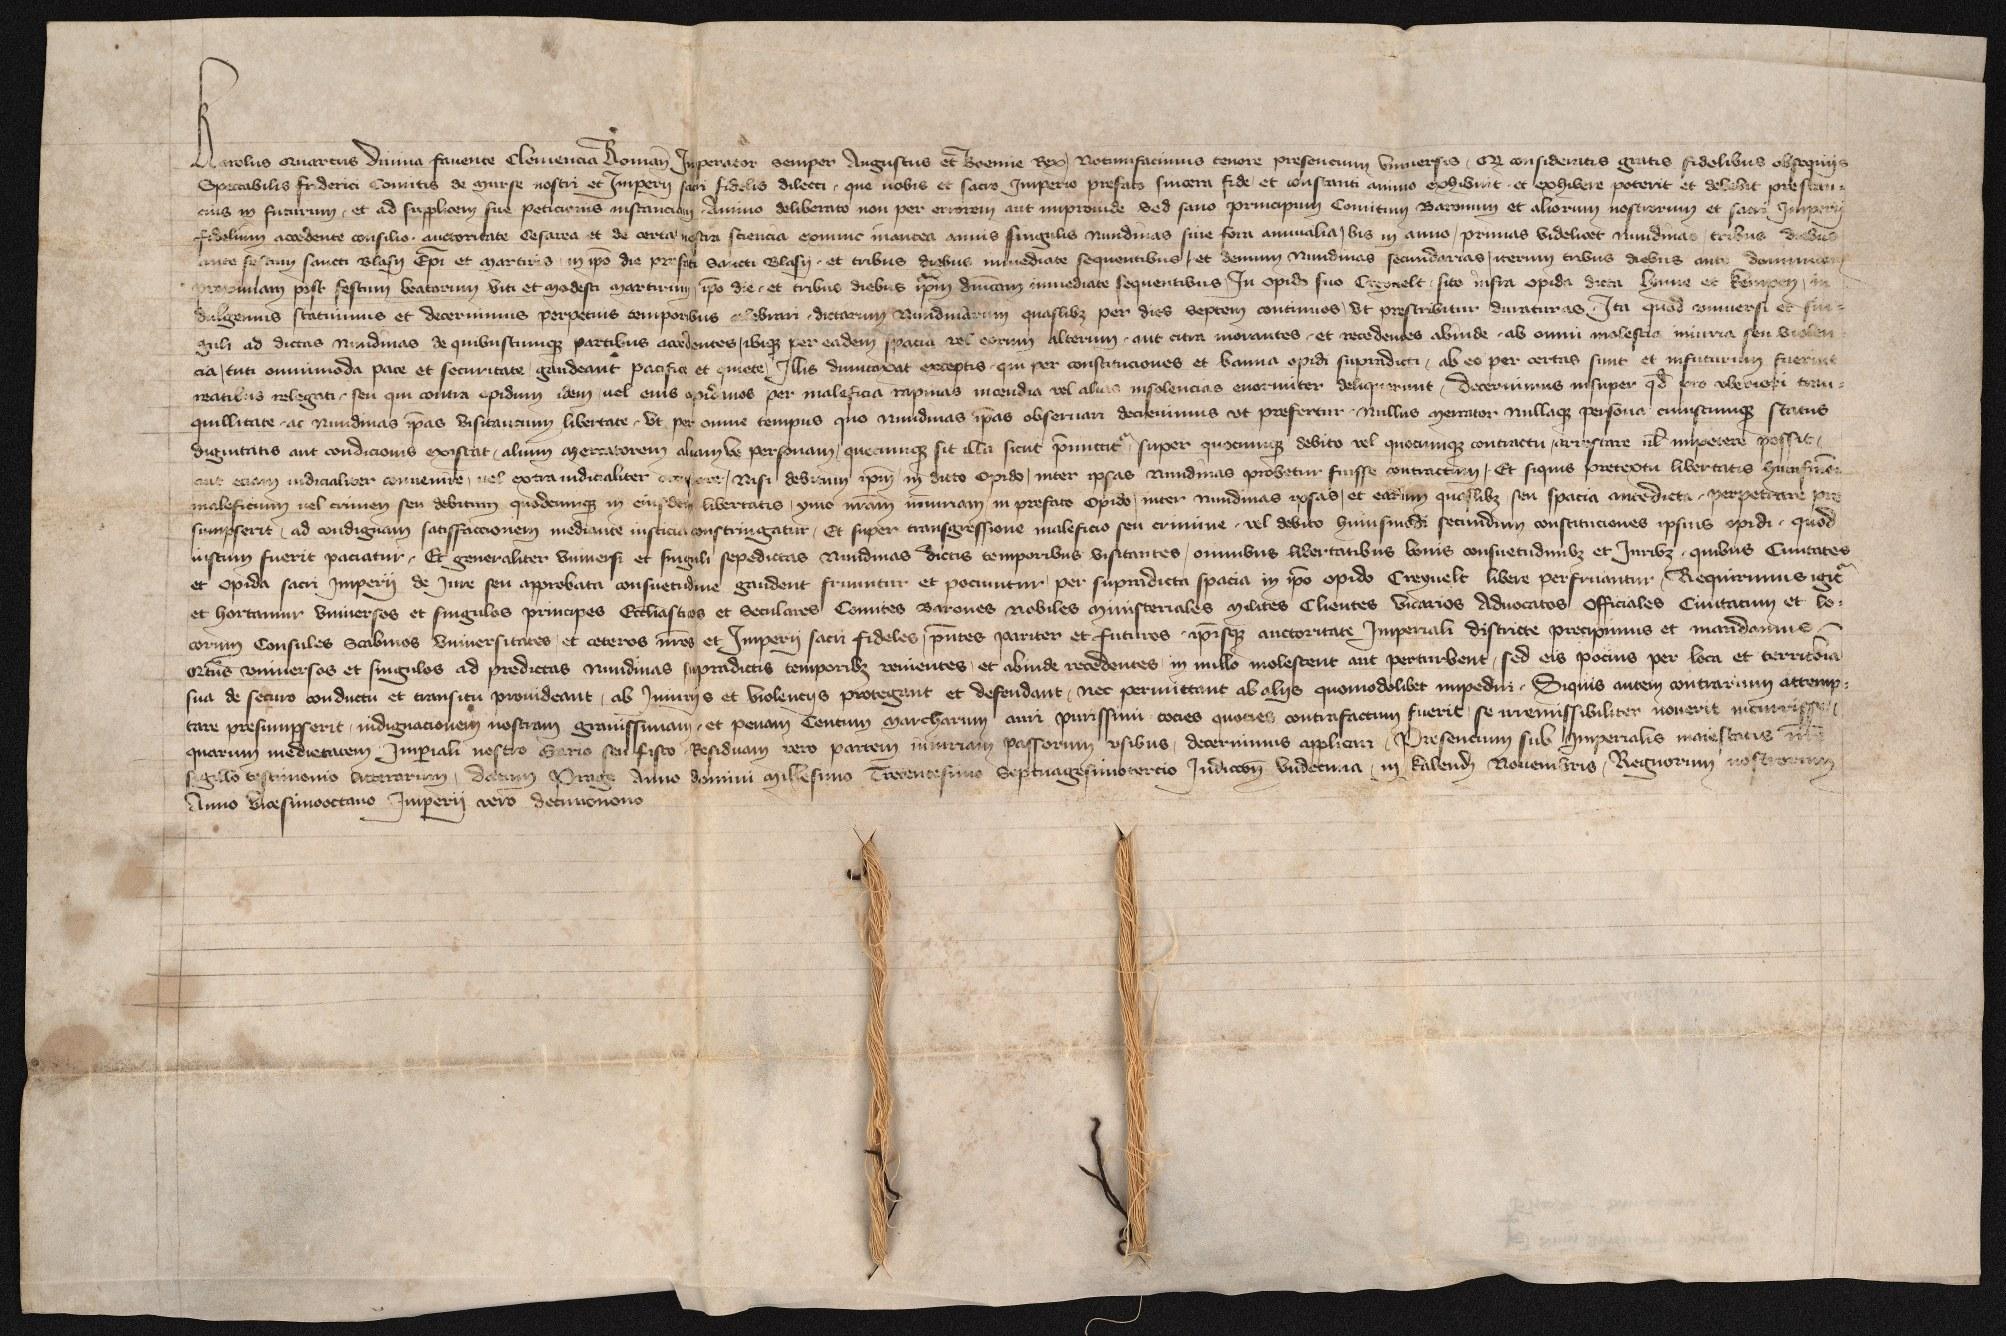 Karolus Quartus Diuina fauente Clemencia Roman̄ Imperator semper Augustus et Boemie Rex Notumfacimus tenore presencium Vniuersis Q consideratis gratis fidelibus obsequijs
Spectabilis friderici Comitis de Murse nostri et Imperij sacri fidelis dilecti que nobis et sacro Imperio prefato sincera fide et constanti animo exhibuit et exhibere poterit et debebit prestan-
cius in futurum et ad supplicem sue peticionis instanciam Animo deliberato non per errorem aut improuide Sed sano principum Comitum Baronum et aliorum nostrorum et sacri Imperij
fidelium accedente consilio auctoritate Cesarea et de certa nostra sciencia exnunc inantea annis singulis Nundinas siue fora annualia bis in anno primas videlicet Nundinas tribus diebus
ante festum sancti Blasij Ep̄i et martiris in ip̄o die prefati Sancti Blasij et tribus diebus immediate sequentibus et demum Nundinas secundarias iterum tribus diebus ante dominicam
proximam post festum beatorum Viti et Modesti martirum ip̄o die et tribus diebus ip̄am dn̄icam immediate sequentibus In opido suo Creyuelt sito infra opida dicta Lynne et Kempen in-
dulgemus statuimus et decernimus perpetuis temporibus celebrari dictarum Nundinarum quaslibz per dies septem continuos Vt prescribitur duraturas Ita quod vniuersi et sin-
guli ad dictas Nundinas de quibuscumqz partibus accedentes ibiqz per eadem spacia vel eorum alterum aut citra morantes et recedentes abinde ab omni molestia iniuria seu violen-
cia tuti omnimoda pace et securitate gaudeant pacifice et quiete Illis dumtaxat exceptis qui per constituciones et banna opidi supradicti ab eo per certas sunt et infuturum fuerint
reatibus relegati seu qui contra opidum idem uel eius opidanos per maleficia rapinas incendia vel alias insolencias enormiter deliquerunt Decernimus insuper qd̄ pro vberiori tran-
quillitate ac Nundinas ip̄as visitancium libertate Vt per omne tempus quo Nundinas ip̄as obseruari decernimus vt prefertur Nullus Mercator Nullaqz persona cuiuscumqz status
dignitatis aut condicionis existat alium Mercatorem aliamve personam quecumqz sit illa sicut p̄mittit᷑ super quocumqz debito vel quocumqz contractu arrestare ul̄ impetere possit
aut eciam iudicialiter conuenire uel extraiudicialiter Nisi debitum ip̄m in dicto Opido inter ipsas Nundinas probetur fuisse contractum Et siquis pretextu libertatis
maleficium uel crimen seu debitum quodcumqz in eiusdem libertatis ymo nr̄am iniuriam in prefato Opido inter Nundinas ipsas et earum quaslibz seu spacia antedicta perpetrare pre-
sumpserit ad condignam satisfaccionem mediante iusticia constringatur Et super transgressione maleficio seu crimine vel debito huiusmodi secundum constituciones ipsius opidi quod
iustum fuerit paciatur Et generaliter Vniuersi et singuli sepedictas Nundinas dictis temporibus visitantes omnibus libertatibus bonis consuetudinibz et Iuribz quibus Ciuitates
et Opida sacri Imperij de Iure seu approbata consuetudine gaudent fruuntur et pociuntur per supradicta spacia in ip̄o opido Creyuelt libere perfruantur Requirimus igit᷑
et hortamur Vniuersos et singulos principes Eccl̄iasticos et Seculares Comites Barones Nobiles Ministeriales Milites Clientes Vicarios Aduocatos Officiales Ciuitatum et lo-
corum Consules Scabinos Vniuersitates et ceteros nr̄os et Imperij sacri fideles p̄ntes pariter et futuros ip̄isqz auctoritate Imperiali districte precipimus et mandamus
Q̄tus vniuersos et singulos ad predictas Nundinas supradictis temporibz venientes et abinde recedentes in nullo molestent aut perturbent sed eis pocius per loca et territoria
sua de securo conductu et transitu prouideant ab Iniurijs et violencijs protegant et defendant nec permittant ab alijs quomodolibet impediri Siquis autem contrarium attemp-
tare presumpserit indignacionem nostram grauissimam et penam Centum Marcharum auri purissimi tocies quocies contrafactum fuerit se irremissibiliter nouerit incurrisse
quarum medietatem Imperiali nostro Erario seu fisco Residuam vero partem iniuriam passorum vsibus decernimus applicari Presencium sub Imperialis maiestatis nr̄e
sigillo testimonio litterarum Datum Prage Anno domini Millesimo Trecentesimo Septuagesimotercio Indiccōn Vndecima iij Kalend Nouembris Regnorum nostrorum
Anno Vicesimooctauo Imperij vero decimonono